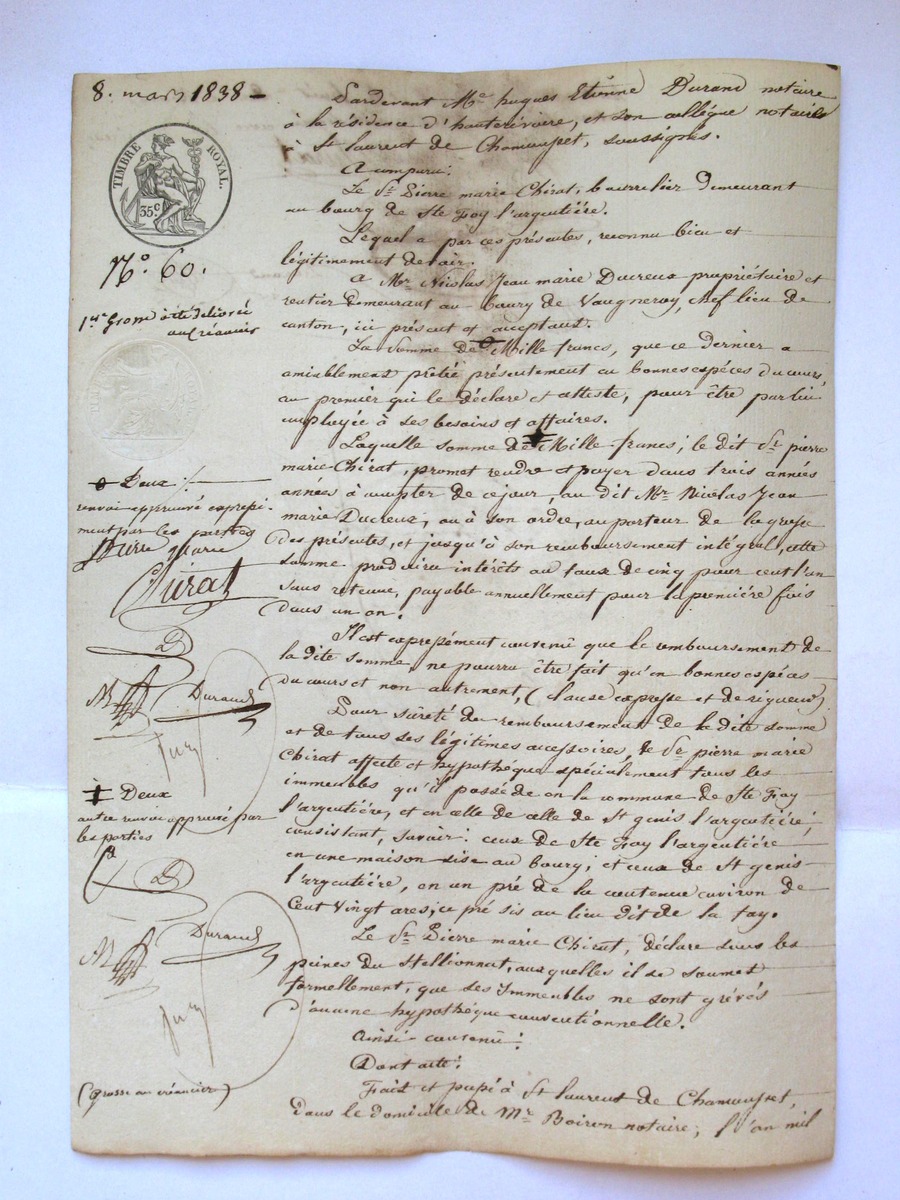 8. mars 1838 -
TIMBRE ROYAL.
35 c.
N.o 60.
1ere Grosse a été délivrée
au Créancier
Deux
renvoi approuvé expressé-
ment par les parties
Pierre Marie
Chirat
D
Durand
Deux
autre renvoi approuvé par
les parties
D
Durand
(grosse au créancier)
Pardevant Me. hugues Etienne Durand notaire
à la résidence d'hauterivoire, et son collégue notaire
à St laurent de Chamousset, soussignés.
A comparu:
Le Sr. Pierre marie Chirat, bourrelier demeurant
au bourg de Ste Foy l'argentiére.
Lequel a par ces présentes, reconnu bien et
légitimement devoir.
A Mr. Nicolas Jean marie Ducreux propriétaire et
rentier demeurant au bourg de Vaugneray, chef lieu de
canton, ici présent et acceptant.
La Somme de Mille francs, que ce dernier a
amiablement prêté présentement en bonnes espéces du cours,
au premier qui le déclare et atteste, pour être par lui
employée à ses besoins et affaires.
Laquelle somme de Mille francs, le dit Sr. pierre
marie Chirat, promet rendre et payer dans trois années
années à compter de ce jour, au dit Mr. Nicolas Jean
marie Ducreux, ou à son ordre, au porteur de la grosse
des présentes, et jusqu'à son remboursement intégral, cette
somme produira intérêts au taux de cinq pour cent l'an
sans retenue, payable annuellement pour la première fois
dans un an.
Il est expressément convenu que le remboursement de
la dite somme, ne pourra être fait qu'en bonnes espéces
du cours et non autrement, (clause expresse et de rigueur)
Pour sûreté du remboursement de la dite somme
et de tous ses légitimes accessoires, le Sr. pierre marie
Chirat affecte et hypothéque spécialement tous les
immeubles qu'il posséde en la commune de Ste Foy
l'argentiére, et en celle de St genis l'argentiére;
consistant, savoir: ceux de Ste Foy l'argentiére
en une maison sise au bourg; et ceux de St genis
l'argentiére, en un pré de la contenue environ de
Cent vingt ares; ce pré sis au lieu dit de la fay.
Le Sr. Pierre marie Chirat, déclare sous les
peines du Stellionnat, auxquelles il se soumet
formellement, que ses immeubles ne sont grévés
d'aucune hypothéque conventionnelle.
Ainsi convenu:
Dont acte:
Fait et passé à St laurent de Chamousset,
dans le domicile de Mr. Boiron notaire; l'an mil